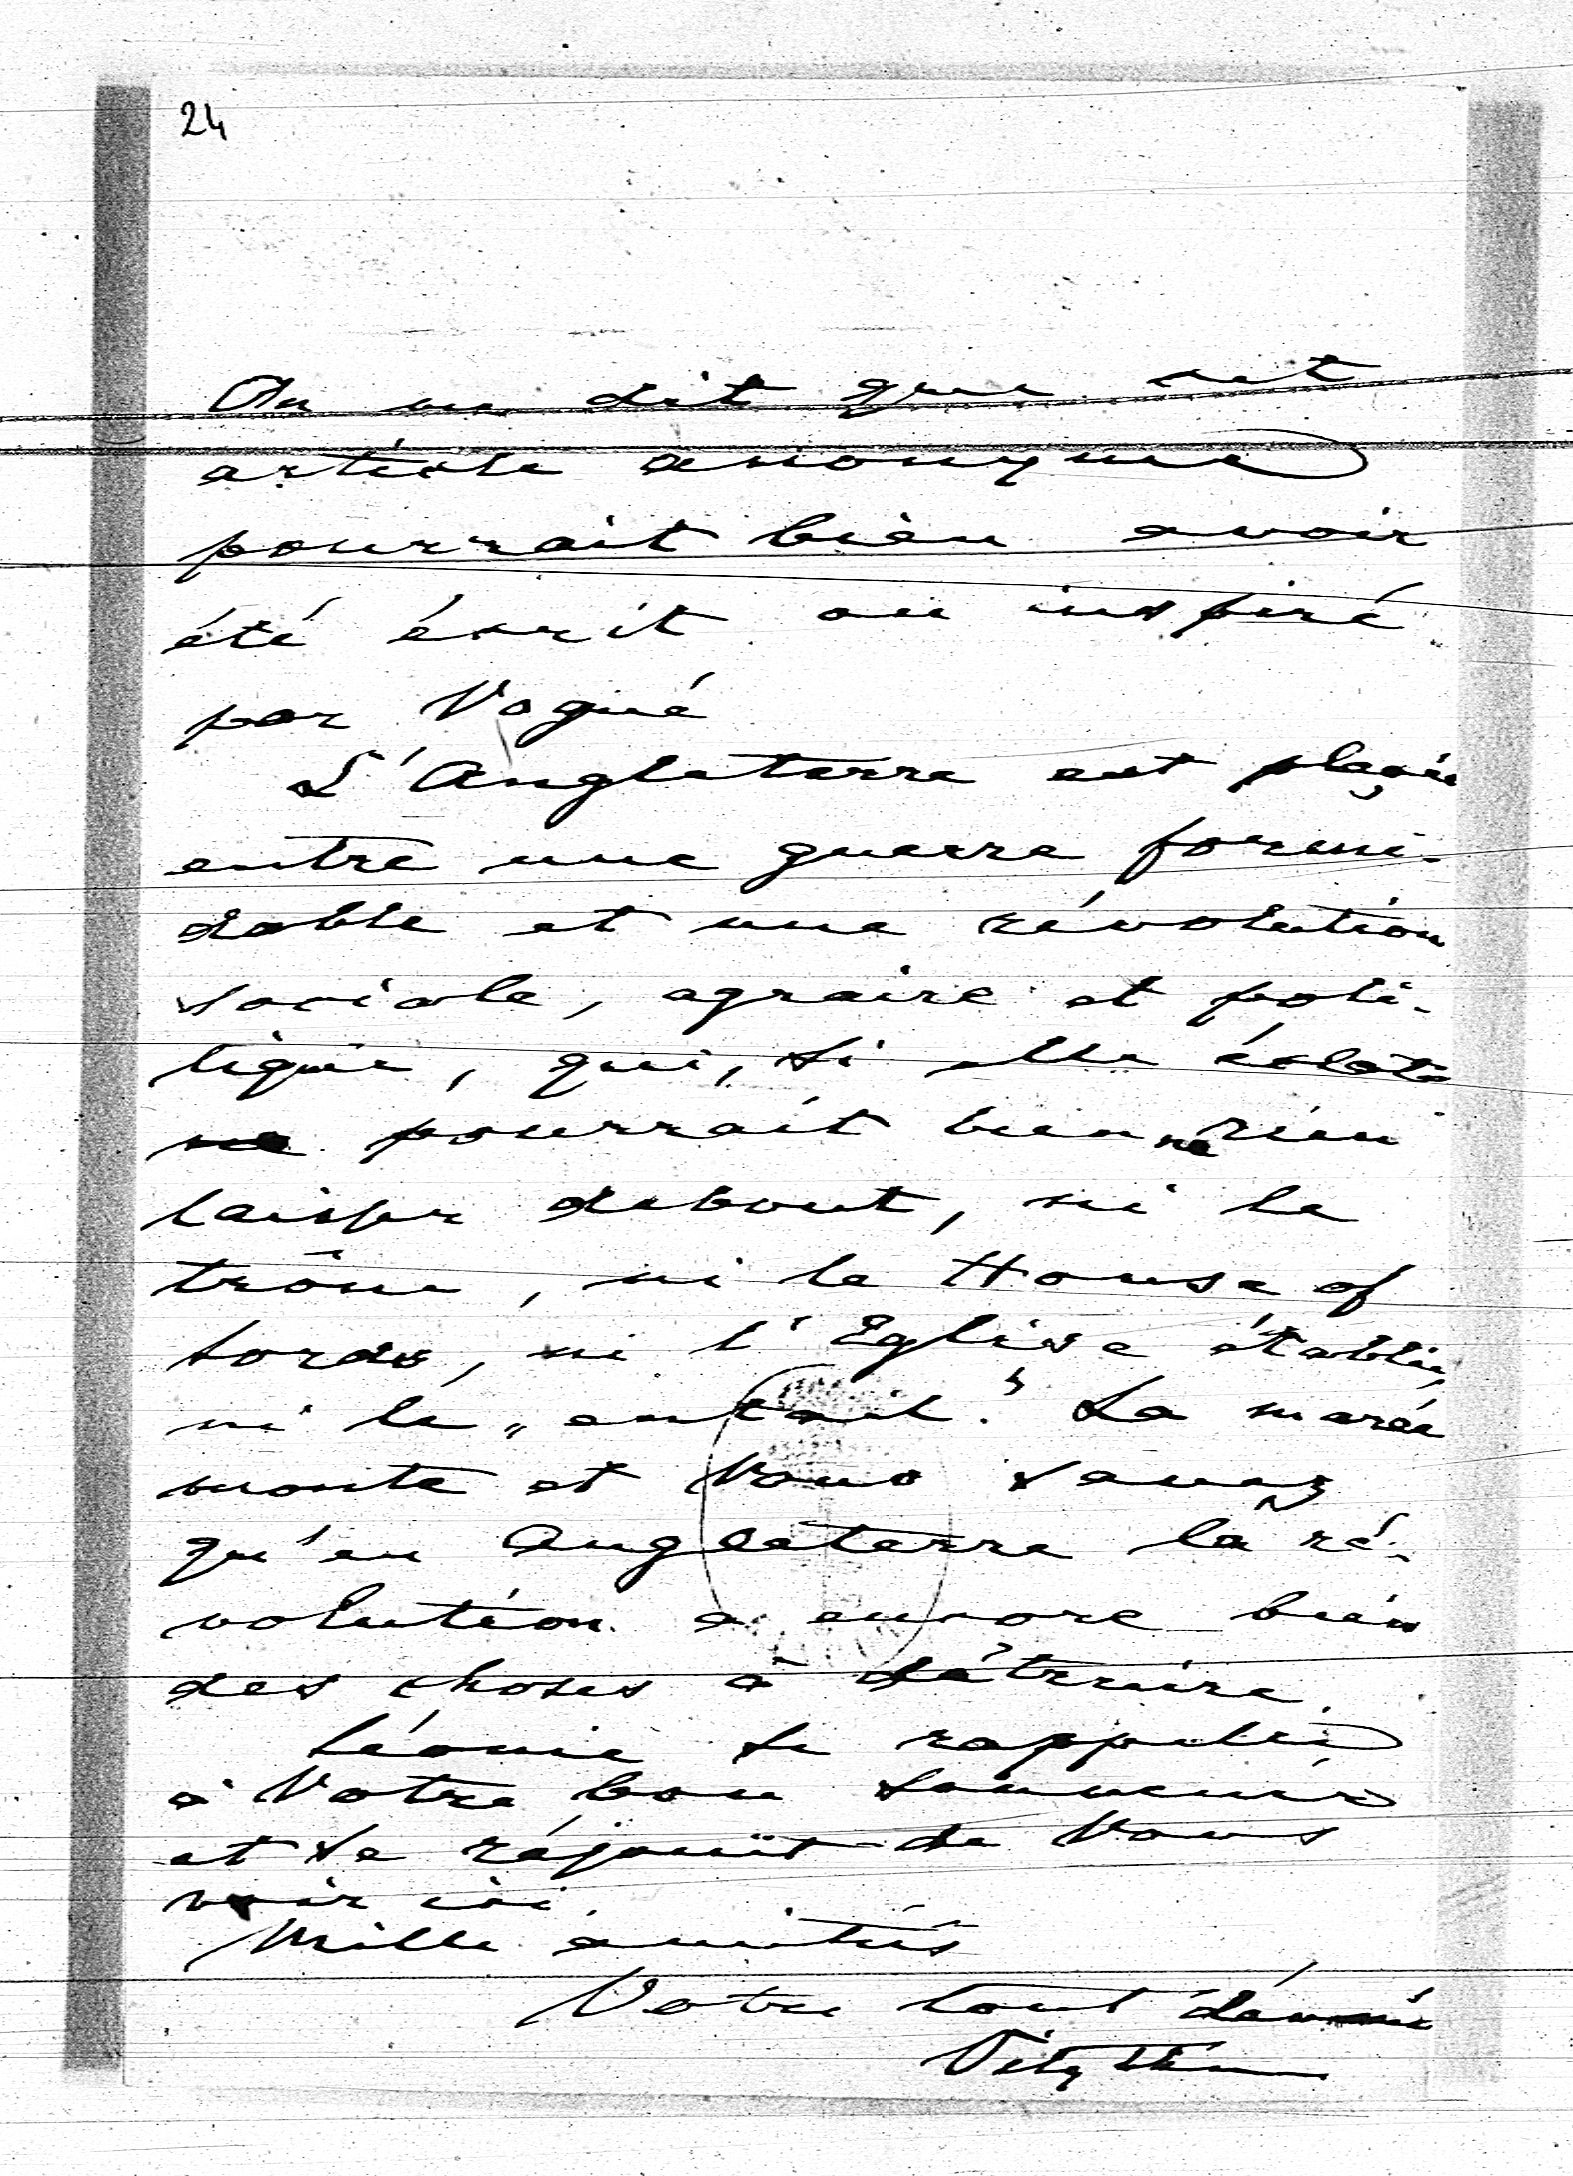 24
On me dit que cet
article anonyme
pourrait bien avoir
été écrit ou inspiré
par Vogué
L'Angleterre est placée
entre une guerre formi-
dable et une révolution
sociale, agraire et poli-
tique, qui, si elle éclate
pourrait bien ne rien
laisser debout, ni le
trône, ni le House of
Lords, ni l'Eglise établie,
ni le „entail." La marée
monte et Vous savez
qu'en Angleterre la ré-
volution a encore bien
des choses à détruire.
Léonie se rappelle
à Votre bon souvenir
et se réjouit de Vous
voir ici
Mille amitiés
Votre tout dévoué